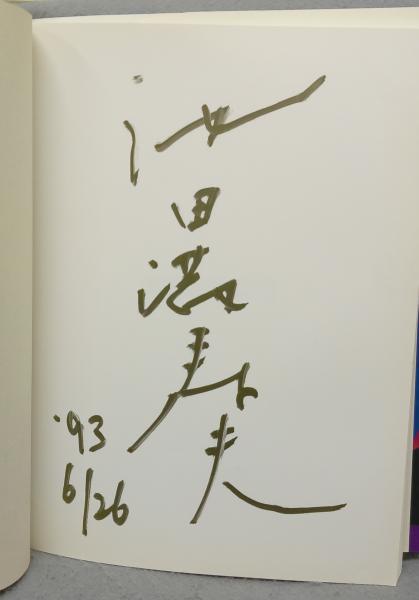 池田満寿夫
'93
6/26